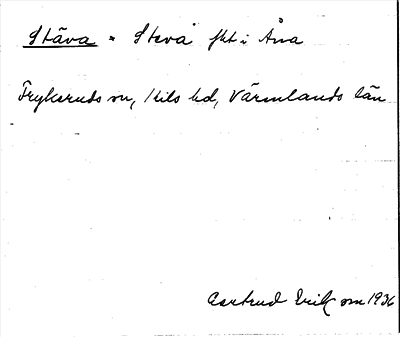 Stäva = Stevå fht i Åna
Frykeruds sn, Kils hd, Värmlands län
Gertrud Erikson 1936